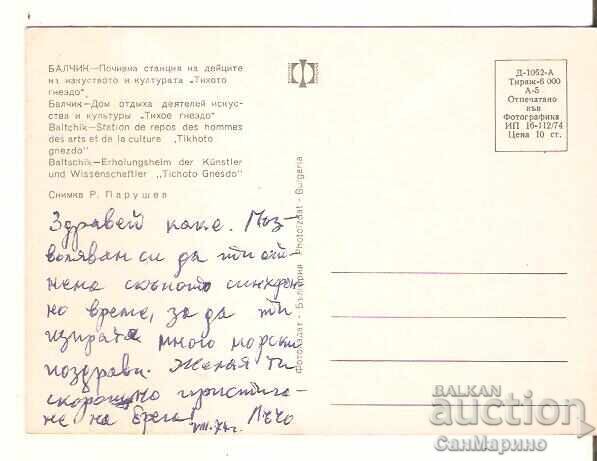 БАЛЧИК—Почивна станция на дейците
на изкуството и културата „Тихото
гнездо"
Балчик—Дом отдыха деятелей искус-
ства и культуры „Тихое гнездо"
Baltchik—Station de repos des hommes
des arts et de la culture „Tikhoto
gnezdo"
Baltschik—Erholungsheim der Künstler
und Wissenschaftler „Tichoto Gnesdo"
Снимка Р. Парушев
Здравей како. Поз-
волявам си да ти от-
нема скъпото
но време, за да ти
изпратя много морски
поздрави. Желая ти
скорошно пристига-
не на брега!
VIII.74г.
Фотоиздат - България Photoizdat - Bulgaria
Д-1052-А
Тираж-6 000
А-5
Отпечатано
във
Фотографика
ИП 16-112/74
Цена 10 ст.
BALKAN
auction
СанМарино